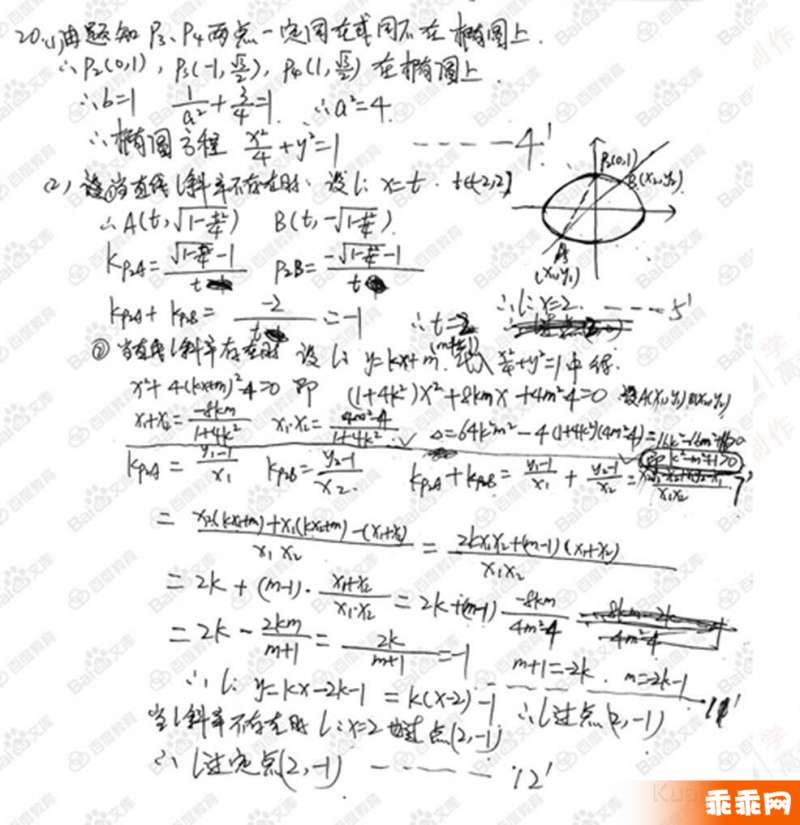 20.(1)由题知 P₃、P₄两点一定同在或同不在椭圆上.
∴P₂(0,1), P₃(-1,√3/2), P₄(1,√3/2) 在椭圆上
∴b=1 1/a²+3/4=1 ∴a²=4.
∴椭圆方程 x²/4+y²=1 ------4'
P₂(0,1)
B(x₂,y₂)
A
(x₁,y₁)
(2)
①当直线l斜率不存在时. 设l: x=t.
∴A(t, B(t,
kP₂A= P₂B=
kP₂A+kP₂B= -2/t =-1 ∴t=2 ∴l: x=2. -----5'
②当直线l斜率存在时 设l: y=kx+m. 代入x²/4+y²=1中得:
x²+4(kx+m)²-4=0 即 (1+4k²)x²+8kmx+4m²-4=0 设A(x₁,y₁)B(x₂,y₂)
x₁+x₂=-8km/1+4k² x₁·x₂=4m²-4/1+4k² △=64k²m²-4(1+4k²)(4m²-4)
kP₂A=y₁-1/x₁ kP₂B=y₂-1/x₂ kP₂A+kP₂B=y₁-1/x₁+y₂-1/x₂= 7'
=x₂(kx₁+m)+x₁(kx₂+m)-(x₁+x₂)/x₁x₂=2kx₁x₂+(m-1)(x₁+x₂)/x₁x₂
=2k+(m-1)·x₁+x₂/x₁·x₂=2k+(m-1)-8km/4m²-4
=2k-2km/m+1=2k/m+1=-1 m+1=-2k. m=-2k-1
∴l: y=kx-2k-1=k(x-2)-1 ∴l过点(2,-1)
当l斜率不存在时 l:x=2也过点(2,-1)
∴l过定点(2,-1) ------12'
百度教育
Bai文库
乖乖网